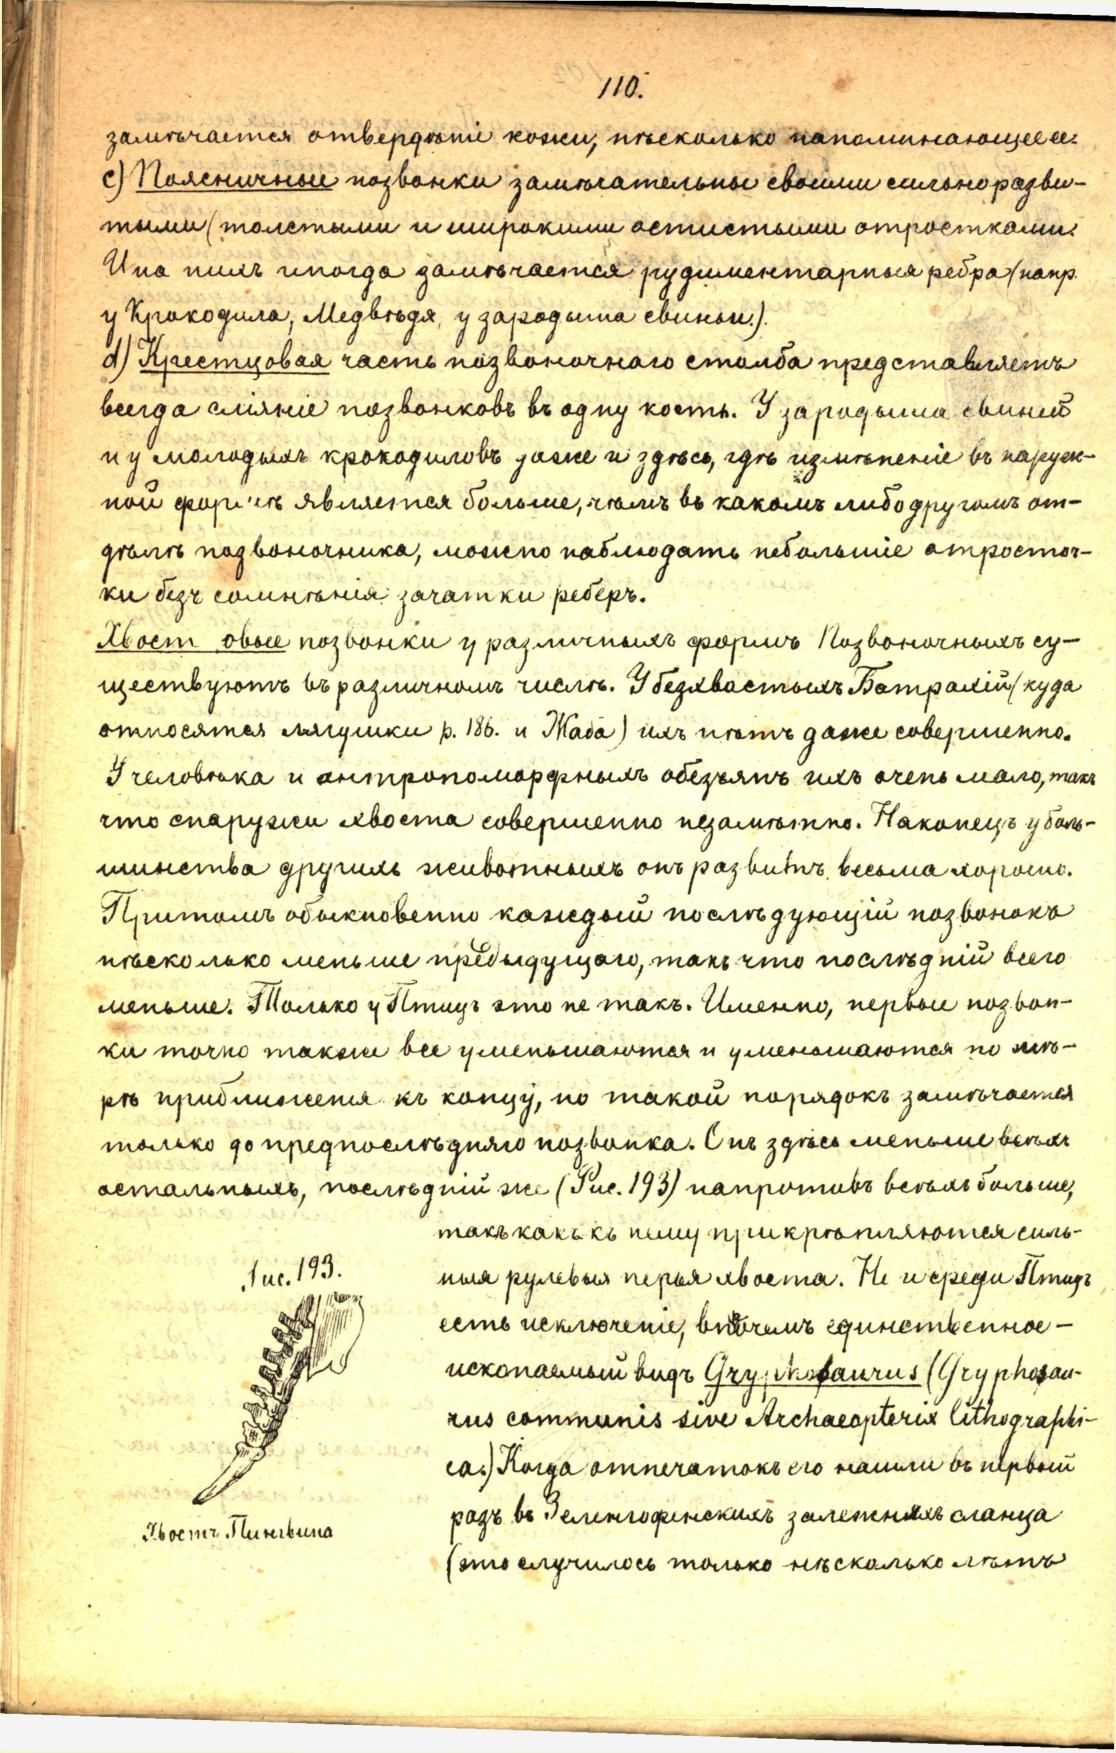 110.
замѣчается отвердѣніе кожи, нѣсколько напоминающее ее.
c) Поясничные позвонки замѣчательны своими сильно разви-
тыми (толстыми и широкими остистыми отростками.
И на нихъ иногда замѣчается рудиментарныя ребра (напр.
у Крокодила, Медвѣдя, у зародыша свиньи.).
d) Крестцовая часть позвоночнаго столба представляетъ
всегда сліяніе позвонковъ въ одну кость. У зародыша свиней
и у молодыхъ крокодиловъ даже и здѣсь, гдѣ измѣненіе въ наруж-
ной формѣ является больше, чѣмъ въ какомъ либо другомъ от-
дѣлѣ позвоночника, можно наблюдать небольшіе отросточ-
ки безъ сомнѣнія зачатки реберъ.
Хвостовые позвонки у различныхъ формъ Позвоночныхъ су-
ществуютъ въ различномъ числѣ. У безхвостыхъ Батрахій (куда
относятся лягушки р. 186. и Жаба) ихъ нѣтъ даже совершенно.
У человѣка и антропоморфныхъ обезьянъ ихъ очень мало, такъ
что снаружи хвоста совершенно незамѣтно. Наконецъ у боль-
шинства другихъ животныхъ онъ развитъ весьма хорошо.
Притомъ обыкновенно каждый послѣдующій позвонокъ
нѣсколько меньше предыдущаго, такъ что послѣдній всего
меньше. Только у Птицъ это не такъ. Именно, первые позвон-
ки точно также все уменьшаются и уменьшаются по мѣ-
рѣ приближенія къ концу, но такой порядокъ замѣчается
только до предпослѣдняго позвонка. Онъ здѣсь меньше всѣхъ
остальныхъ, послѣдній же (Рис. 193) напротивъ всѣхъ больше,
такъ какъ къ нему прикрѣпляются силь-
ныя рулевыя перья хвоста. Но и среди Птицъ
есть исключеніе, впрочемъ единственное -
ископаемый видъ Gryphosaurus (Gryphosau-
rus communis sive Archaeopterix lithographi-
ca.) Когда отпечатокъ его нашли въ первый
разъ въ Зеленгофенскихъ залежняхъ сланца
(это случилось только нѣсколько лѣтъ
Рис. 193.
Хвостъ Пингвина